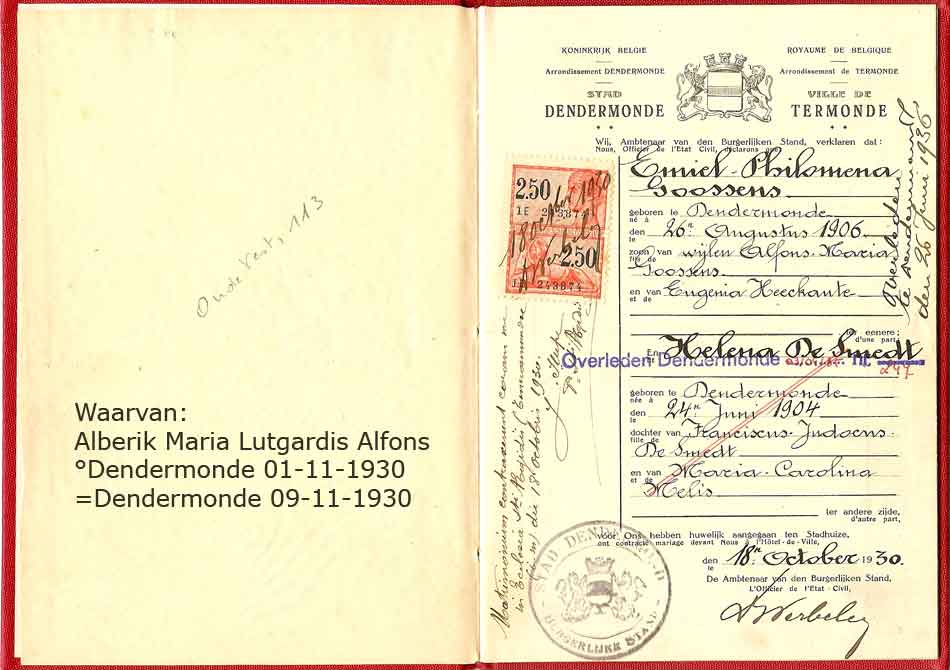 Oude Vest, 113
Waarvan:
Alberik Maria Lutgardis Alfons
°Dendermonde 01-11-1930
=Dendermonde 09-11-1930
KONINKRIJK BELGIE
ROYAUME DE BELGIQUE
Arrondissement DENDERMONDE
Arrondissement de TERMONDE
STAD
VILLE DE
DENDERMONDE
TERMONDE
Wij, Ambtenaar van den Burgerlijken Stand, verklaren dat :
Nous, Officier de l'Etat Civil, déclarons que
Emiel Philomena
Goossens
geboren te Dendermonde
né à
den 26n Augustus 1906
le
zoon van wijlen Alfons-Maria
fils de
Goossens
en van Eugenia Heeckante
et de
ter eenere;
d'une part,
En Helena De Smedt
Et
Overleden Dendermonde nr. 247
geboren te Dendermonde
née à
den 24n Juni 1904
le
dochter van Franciscus-Judocus-
fille de
De Smedt
en van Maria-Carolina
et de
Melis
ter andere zijde,
d'autre part,
vóór Ons hebben huwelijk aangegaan ten Stadhuize,
ont contracté mariage devant Nous à l'Hôtel-de-Ville,
den 18n October 1930.
le
De Ambtenaar van den Burgerlijken Stand,
L'Officier de l'Etat-Civil,
Overleden
den 26 Juni 1936
2.50
1E 243874
18 october 1930
2.50
1E 243874
Matrimonium contraxerunt coram me
in Ecclesia
die 18 octobris 1930.
STAD DENDERMOND
BURGERLIJKE STAND